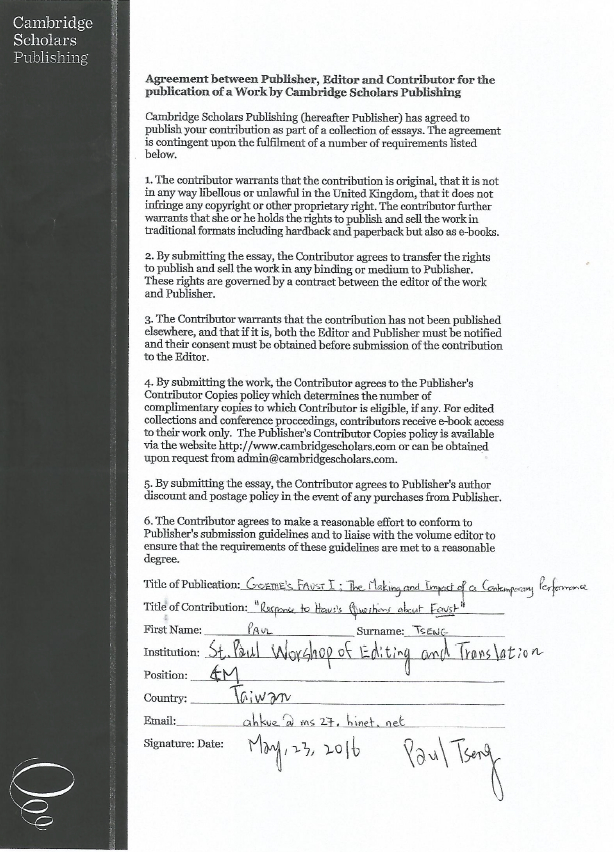 Cambridge
Scholars
Publishing
Agreement between Publisher, Editor and Contributor for the
publication of a Work by Cambridge Scholars Publishing
Cambridge Scholars Publishing (hereafter Publisher) has agreed to
publish your contribution as part of a collection of essays. The agreement
is contingent upon the fulfilment of a number of requirements listed
below.
1. The contributor warrants that the contribution is original, that it is not
in any way libellous or unlawful in the United Kingdom, that it does not
infringe any copyright or other proprietary right. The contributor further
warrants that she or he holds the rights to publish and sell the work in
traditional formats including hardback and paperback but also as e-books.
2. By submitting the essay, the Contributor agrees to transfer the rights
to publish and sell the work in any binding or medium to Publisher.
These rights are governed by a contract between the editor of the work
and Publisher.
3. The Contributor warrants that the contribution has not been published
elsewhere, and that if it is, both the Editor and Publisher must be notified
and their consent must be obtained before submission of the contribution
to the Editor.
4. By submitting the work, the Contributor agrees to the Publisher's
Contributor Copies policy which determines the number of
complimentary copies to which Contributor is eligible, if any. For edited
collections and conference proceedings, contributors receive e-book access
to their work only. The Publisher's Contributor Copies policy is available
via the website http://www.cambridgescholars.com or can be obtained
upon request from admin@cambridgescholars.com.
5. By submitting the essay, the Contributor agrees to Publisher's author
discount and postage policy in the event of any purchases from Publisher.
6. The Contributor agrees to make a reasonable effort to conform to
Publisher's submission guidelines and to liaise with the volume editor to
ensure that the requirements of these guidelines are met to a reasonable
degree.
Title of Publication: GOETHE'S FAUST I: The Making and Impact of a Contemporary Performance
Title of Contribution: "Response to Hans's Questions about Faust"
First Name: PAUL Surname: TSENG
Institution: St. Paul Worshop of Editing and Translation
Position: EM
Country: Taiwan
Email: ahkue@ms27.hinet.net
Signature: Date: May, 23, 2016 Paul Tseng